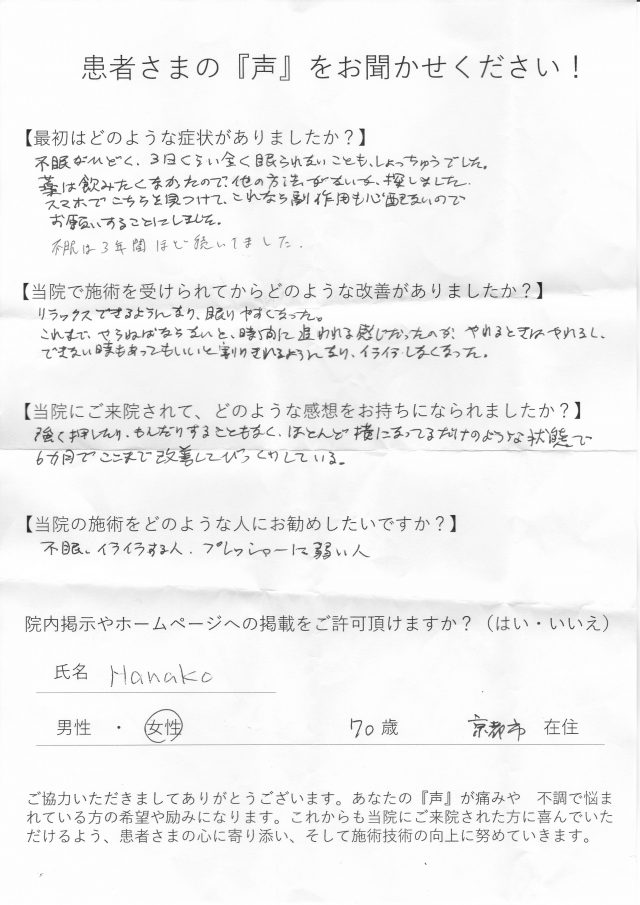 患者さまの『声』をお聞かせください！
【最初はどのような症状がありましたか？】
不眠がひどく、3日くらい全く眠られないことも、しょっちゅうでした。
薬は飲みたくなかったので、他の方法がないか、探しました。
スマホでこちらを見つけて、これなら副作用も心配ないので
お願いすることにしました。
不眠は3年間ほど続いてました.
【当院で施術を受けられてからどのような改善がありましたか？】
リラックスできるようになり、眠りやすくなった。
これまで、やらねばならないと、時間に追われる感じだったのが、やれるときはやれるし、
できない時もあってもいいと割りきれるようになり、イライラしなくなった。
【当院にご来院されて、どのような感想をお持ちになられましたか？】
強く押したり、もんだりすることもなく、ほとんど横になってるだけのような状態で
6カ月でここまで改善してびっくりしている。
【当院の施術をどのような人にお勧めしたいですか？】
不眠、イライラする人、プレッシャーに弱い人
院内掲示やホームページへの掲載をご許可頂けますか？（はい・いいえ）
氏名 Hanako
男性 ・ 女性 70歳 京都市 在住
ご協力いただきましてありがとうございます。あなたの『声』が痛みや 不調で悩ま
れている方の希望や励みになります。これからも当院にご来院された方に喜んでいた
だけるよう、患者さまの心に寄り添い、そして施術技術の向上に努めていきます。